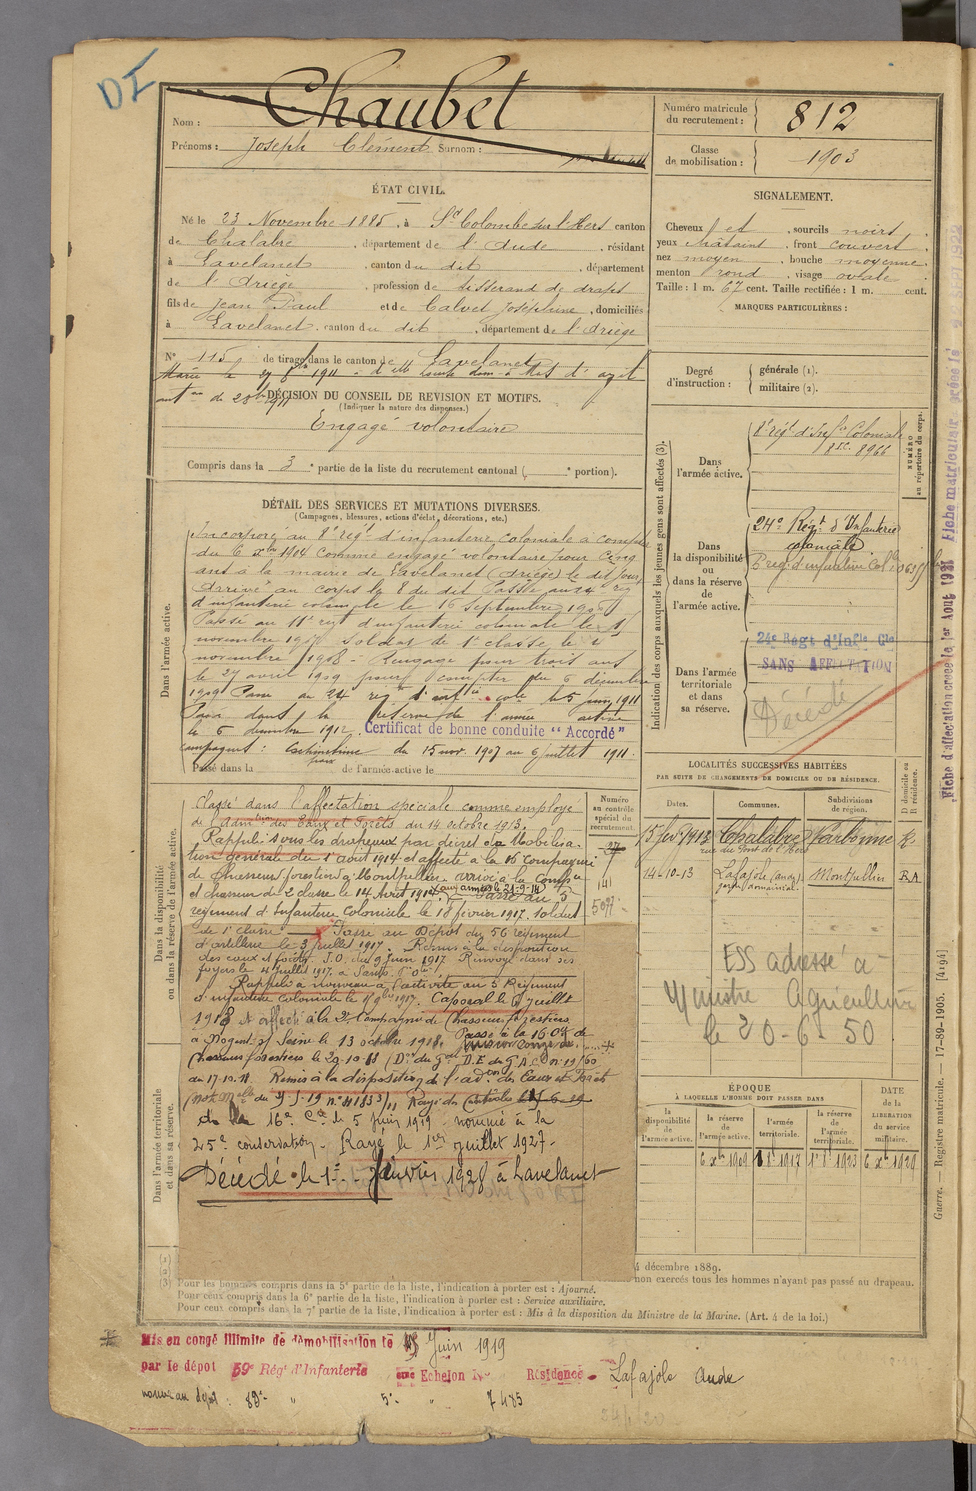 DI
Nom : Chaubet
Prénoms : Joseph Clément Surnom :
Numéro matricule du recrutement : 812
Classe de mobilisation : 1903
ÉTAT CIVIL.
Né le 23 Novembre 1885, à Ste Colombe sur l'Hers canton
de Chalabre, département de l'Aude, résidant
à Lavelanet, canton du dit, département
de l'Ariège, profession de tisserand de draps
fils de Jean Paul et de Calvet Joséphine, domiciliés
à Lavelanet, canton du dit, département de l'Ariège
N° 115 de tirage dans le canton de Lavelanet
DÉCISION DU CONSEIL DE REVISION ET MOTIFS.
(Indiquer la nature des dispenses.)
Engagé volontaire
Compris dans la 3e partie de la liste du recrutement cantonal ( e portion).
SIGNALEMENT.
Cheveux et, sourcils noirs
yeux châtains, front couvert
nez moyen, bouche moyenne
menton rond, visage ovale
Taille : 1 m. 67 cent. Taille rectifiée : 1 m. cent.
MARQUES PARTICULIÈRES :
Degré d'instruction : générale (1). militaire (2).
DÉTAIL DES SERVICES ET MUTATIONS DIVERSES.
(Campagnes, blessures, actions d'éclat, décorations, etc.)
Dans l'armée active.
Incorporé au 8e régt d'infanterie coloniale à compter
du 6 Xbre 1904 comme engagé volontaire pour cinq
ans à la mairie de Lavelanet (Ariège) le dit jour
Arrivé au corps le 8 du dit Passé au 24e rég
d'infanterie coloniale le 16 septembre
Passé au 11e régt d'infanterie coloniale le
novembre 1907 Soldat de 1e classe le
novembre 1908 - Rengagé pour trois ans
le 27 avril 1909 pour compter du 6 décembre
1909 Passé au 24 régt d'inf col le 5 juin 1911
Passé dans la réserve de l'armée active
le 6 décembre 1912. Certificat de bonne conduite "Accordé"
campagnes : Cochinchine du 15 nov. 1907 au 6 juillet 1911.
Passé dans la de l'armée active le
Indication des corps auxquels les jeunes gens sont affectés (3).
NUMÉRO au répertoire du corps.
Dans l'armée active.
8e régt d'Infie Coloniale
8966
Dans la disponibilité ou dans la réserve de l'armée active.
24e Régt d'Infanterie
coloniale
Dans l'armée territoriale et dans sa réserve.
24e Régt d'Infie Cle
SANS AFFECTATION
Décédé
Dans la disponibilité ou dans la réserve de l'armée active.
Classé dans l'affectation spéciale comme employé
de l'admtion des Eaux et Forêts du 14 octobre 1913.
Rappelé sous les drapeaux par décret de Mobilisa-
tion générale du 1er août 1914 et affecté à la 16 Compagnie
de Chasseurs forestiers à Montpellier arrivé à la Compie
et chasseur de 2e classe le 14 Août 1914. aux armées le 21-9-14 Passé au 5
régiment d'Infanterie Coloniale le 18 février 1917. Soldat
de 1e classe Passé au Dépôt du 56 régiment
d'artillerie le 3 juillet 1917. Remis à la disposition
des eaux et forêts J.O. du 9 juin 1917 Renvoyé dans ses
foyers le 4 juillet 1917.
Rappelé à nouveau à l'activité au 5 Régiment
d'infanterie coloniale le 1917. Caporal le juillet
1918 et affecté à la 2e Compagnie de Chasseurs forestiers
à Nogent s/ Seine le 13 octobre 1918. Passé à la 16 Cie de
Chasseurs forestiers le 20-10-18
au 17-10-18. Remis à la disposition de l'adon des Eaux et Forêts
de la 16e Cie le 5 juin 1919 - nommé à la
25e conservation - Rayé le 1er juillet 1927 -
Décédé le 1er Janvier 1928 à Lavelanet
Dans l'armée territoriale et dans sa réserve.
Numéro au contrôle spécial du recrutement.
141
LOCALITÉS SUCCESSIVES HABITÉES
PAR SUITE DE CHANGEMENTS DE DOMICILE OU DE RÉSIDENCE.
Dates. Communes. Subdivisions de région. D domicile ou R résidence.
15 fév 1913 Chalabre Narbonne R.
rue du Pont de l'Hers
14-10-13 Lafajole (Aude) Montpellier RA
garde domanial
ESS adressé à
Ministre Agriculture
le 20-6-50
ÉPOQUE
À LAQUELLE L'HOMME DOIT PASSER DANS
la disponibilité de l'armée active. la réserve de l'armée active. l'armée territoriale. la réserve de l'armée territoriale. DATE de la LIBÉRATION du service militaire.
6 Xbre 1909
Fiche d'affectation créée le 1er Août 1931 Fiche matriculaire créée le
Guerre. — Registre matricule. — 17-89-1905. [4194]
4 décembre 1889.
non exercés tous les hommes n'ayant pas passé au drapeau.
(1)
(2)
(3) Pour les hommes compris dans la 5e partie de la liste, l'indication à porter est : Ajourné.
Pour ceux compris dans la 6e partie de la liste, l'indication à porter est : Service auxiliaire.
Pour ceux compris dans la 7e partie de la liste, l'indication à porter est : Mis à la disposition du Ministre de la Marine. (Art. 4 de la loi.)
Mis en congé illimité de démobilisation le Juin 1919
par le dépôt 59e Régt d'Infanterie Echelon No Résidence Lafajole Aude
nouveau dépôt : 83e " 5e " 7485